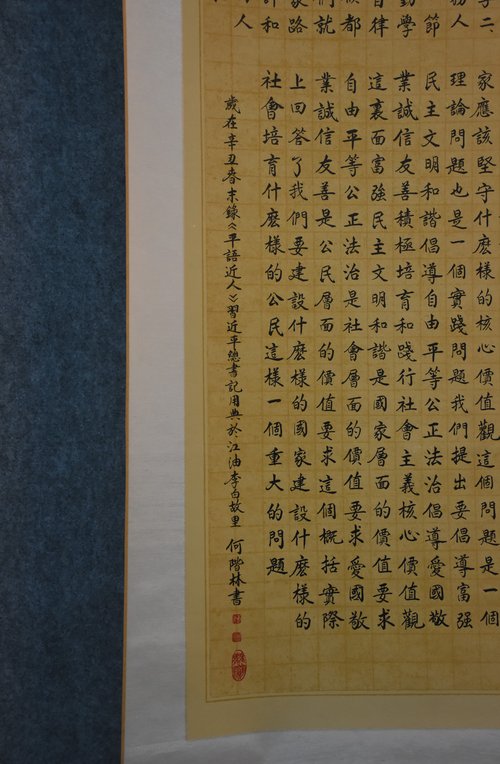 二、
家應該堅守什麽樣的核心價值觀這個問題是一個
務人
理論問題也是一個實踐問題我們提出要倡導富强
節
民主文明和諧倡導自由平等公正法治倡導愛國敬
勤學
業誠信友善積極培育和踐行社會主義核心價值觀
自律
這裏面富强民主文明和諧是國家層面的價值要求
都
自由平等公正法治是社會層面的價值要求愛國敬
們就
業誠信友善是公民層面的價值要求這個概括實際
家路
上回答了我們要建設什麽樣的國家建設什麽樣的
和
社會培育什麽樣的公民這樣一個重大的問題
人
歲在辛丑春末錄《平語近人》習近平總書記用典於江油李白故里 何階林書